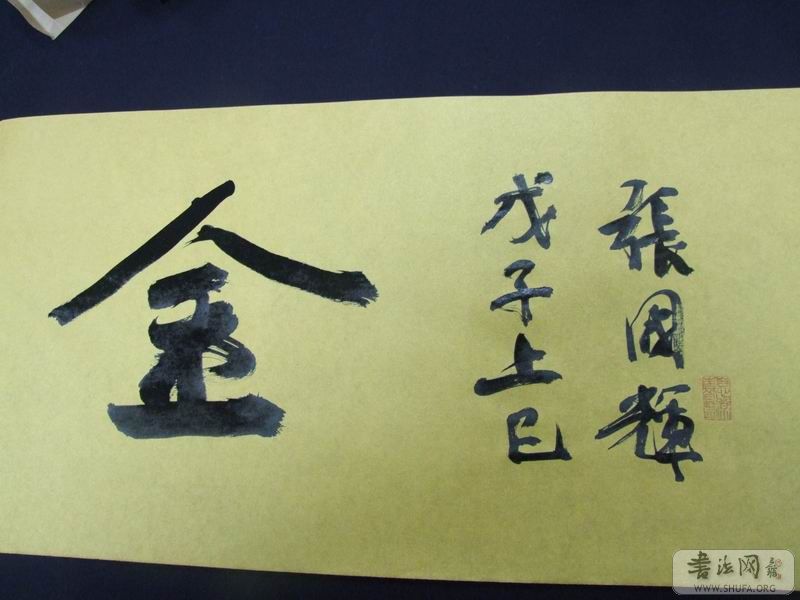 張國輝
戊子上巳
金
书法网
WWW.SHUFA.ORG